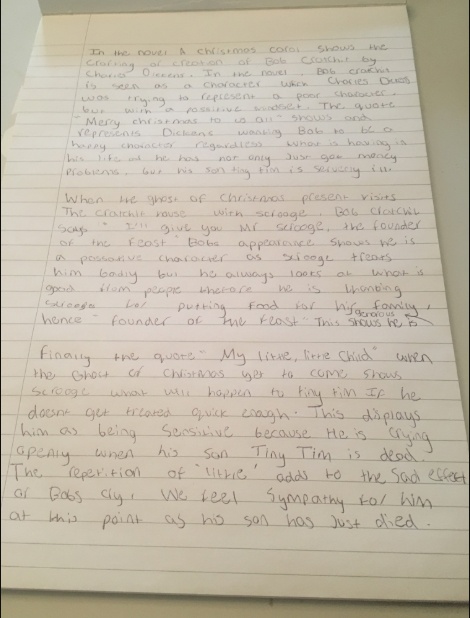 In the novel A christmas carol shows the
crafting or creation of Bob Cratchit by
Charles Dickens. In the novel, Bob crachit
is seen as a character which Charles Dickens
was trying to represent a poor character,
but with a possitive mindset. The quote
"Merry christmas to us all" shows and
represents Dickens wanting Bob to be a
happy character regardless what is having is
his life as he has not only Just got money
problems, but his son tiny tim is seriously ill.
When the ghost of Christmas present visits
The cratchit house with scrooge. Bob Cratchit
says "I'll give you Mr scrooge, the founder
of the Feast" Bobs appearence shows he is
a possative character as scrooge treats
him badly but he always looks at what is
good from people therfore he is thanking
scrooge for putting food for his family,
hence "founder of the feast" This shows he is generous
Finally the quote "My little, little child" when
the Ghost of Christmas yet to come shows
scrooge what will happen to tiny tim If he
doesnt get treated quick enough. This displays
him as being Sensitive because He is crying
openly when his son Tiny Tim is dead.
The repetition of 'little' adds to the sad effect
of Bobs cry, We feel Sympathy for him
at this point as his son has Just died.